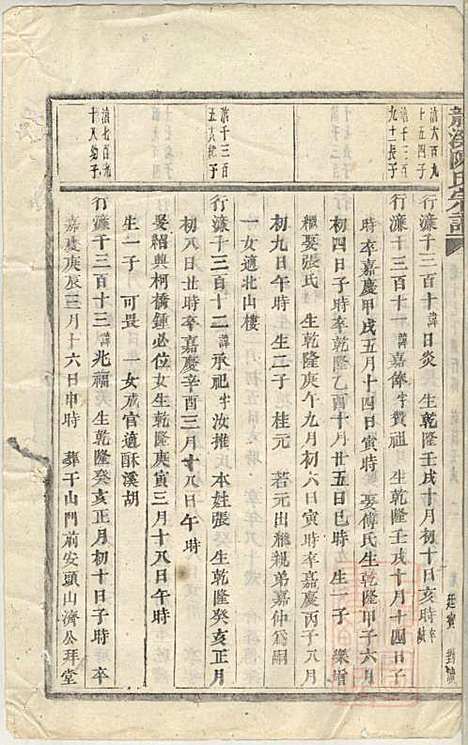 龍溪陳氏宗譜
行濂千三百十 諱日炎 生乾隆壬戌十月初十日亥時 卒缺
行濂千三百十一 諱嘉俸 字贊祖 生乾隆壬戌十月十四日子
時 卒嘉慶甲戌五月十四日寅時 娶傅氏 生乾隆甲子六月
初四日子時 卒乾隆乙酉十月廿五日巳時 生一子 樂
繼娶張氏 生乾隆庚午九月初六日寅時 卒嘉慶丙子八月
初九日午時 生二子 桂元 若元出繼親弟嘉仲為嗣
一女適北山樓
行濂千三百十二 諱承祀 字汝推 本姓張 生乾隆癸亥正月
初八日丑時 卒嘉慶辛酉三月十八日午時
娶紹興柯橋鍾必位女 生乾隆庚寅三月十八日午時
生一子 可畏 一女戒官適酥溪胡
行濂千三百十三 諱兆福 生乾隆癸亥正月初十日子時 卒
嘉慶庚辰三月十六日申時 葬于山門前安頭山濟公拜堂